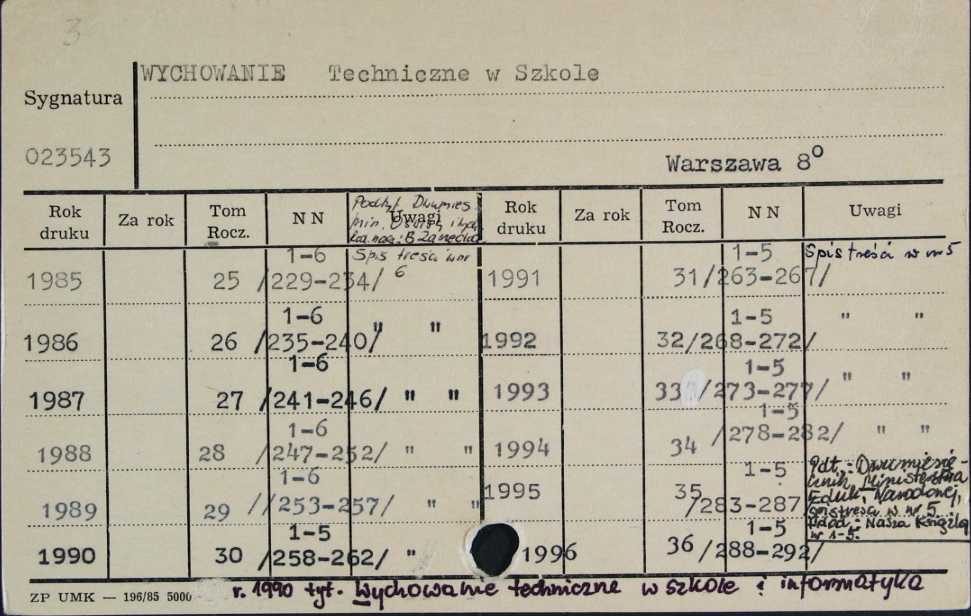 3
WYCHOWANIE Techniczne w Szkole
Sygnatura
023543
Warszawa 8º
Rok druku Za rok Tom Rocz. N N Uwagi Rok druku Za rok Tom Rocz. N N Uwagi
Podtyt. Dwumies.
Min. Oświaty i Wych.
Spis treści w nr 6
1985 25 1-6 /229-234/
1986 26 1-6 /235-240/ " "
1987 27 1-6 /241-246/ " "
1988 28 1-6 /247-252/ " "
1989 29 1-6 //253-257/ " "
1990 30 1-5 /258-262/ "
1991 31 1-5 /263-267/ Spis treści w nr 5
1992 32 1-5 /268-272/ " "
1993 33 1-5 /273-277/ " "
1994 34 1-5 /278-282/ " "
1995 35 1-5 /283-287
1996 36 1-5 /288-292/
Pdt.: Dwumiesię-
cznik Ministerstwa
Eduk. Narodowej,
spis treści w nr 5.
Dod.: Nasza Książka
nr 1-5.
ZP UMK — 196/85 5000
r. 1990 tyt. Wychowanie techniczne w szkole i informatyka